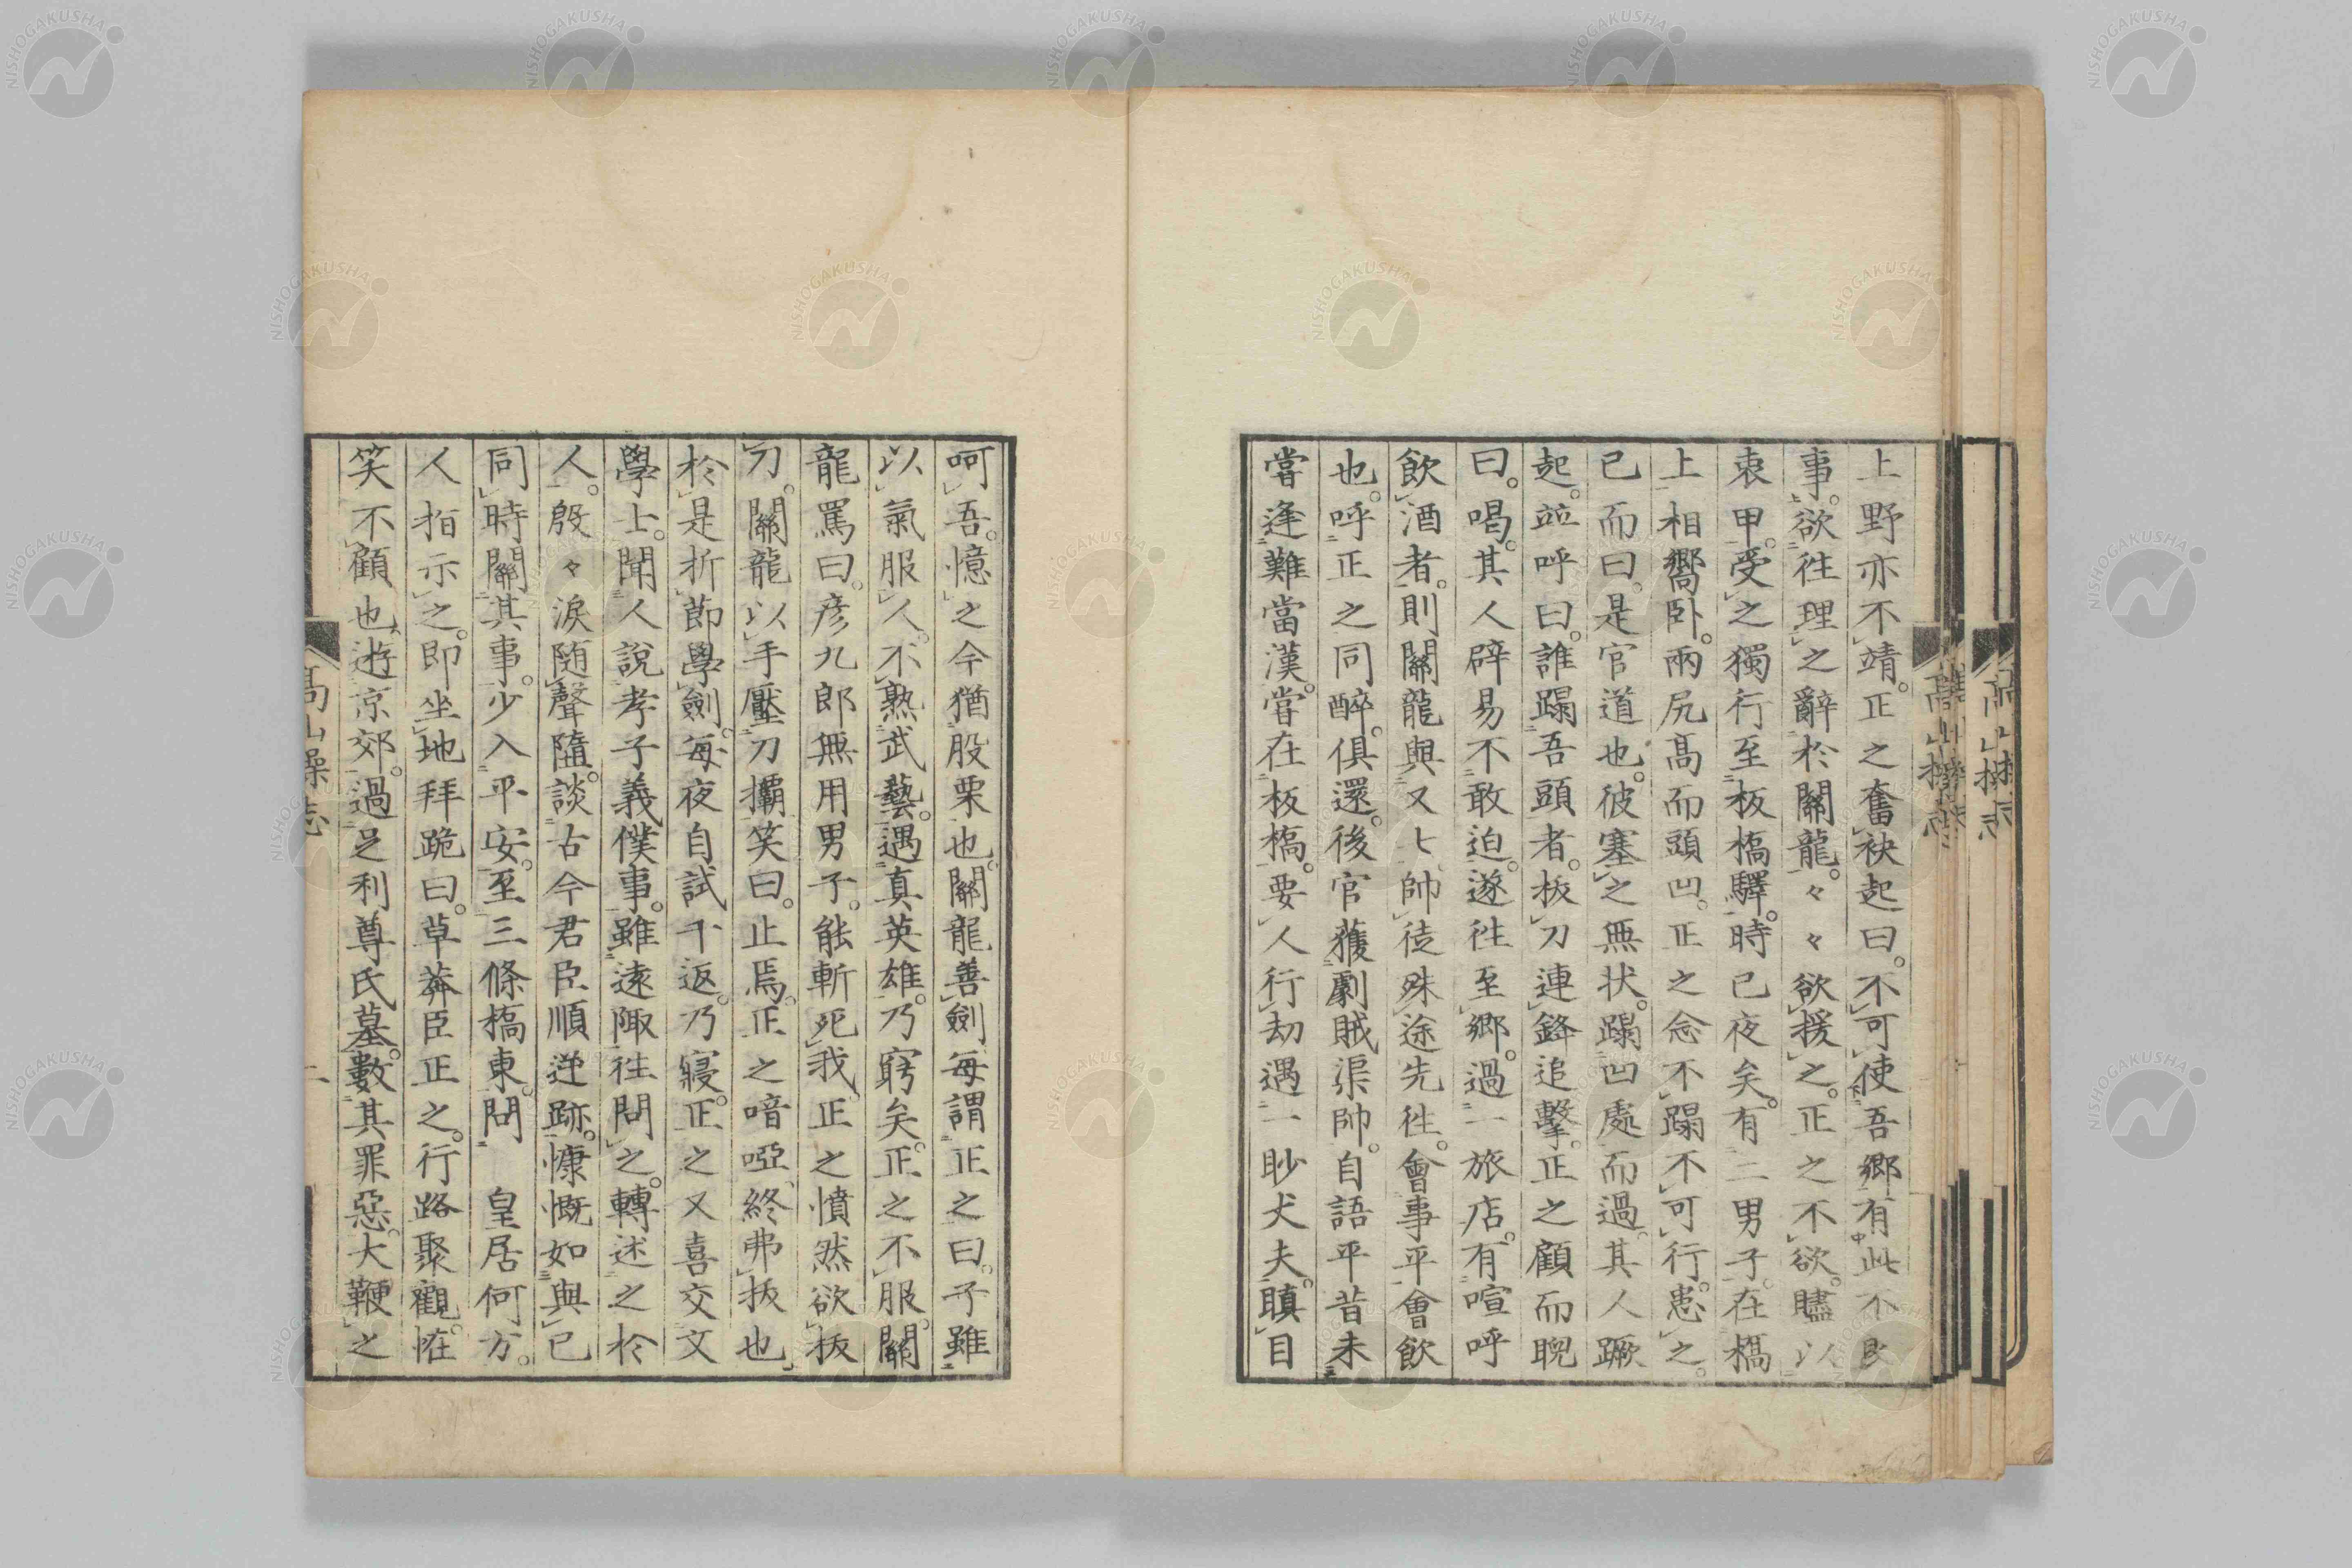 上野亦不靖。正之奮袂起曰。不可使吾郷有此不良
事。欲往理之辭於關龍。々々欲援之。正之不欲。贐以
衷甲。受之獨行至板橋驛。時已夜矣。有二男子。在橋
上相嚮卧。兩尻高而頭凹。正之念不蹋不可行。患之。
已而曰。是官道也。彼塞之無状。蹋凹處而過。其人蹶
起。竝呼曰。誰蹋吾頭者。拔刀連鋒追擊。正之顧而睨
曰。喝。其人辟易不敢迫。遂往至郷。過一旅店。有喧呼
飲酒者。則關龍與又七帥徒殊途先往。會事平會飲
也。呼正之同醉。俱還。後官獲劇賊渠帥。自語平昔未
嘗逢難當漢。嘗在板橋。要人行劫遇一眇丈夫。瞋目
呵吾。憶之今猶股栗也。關龍善劍每謂正之曰。子雖
以氣服人。不熟武藝。遇真英雄。乃窮矣。正之不服。關
龍罵曰。彦九郎無用男子。能斬死我。正之憤然欲拔
刀。關龍以手壓刀欛笑曰。止焉。正之喑啞、終弗拔也
於是折節學劍。每夜自試千返。乃寢。正之又喜交文
學士。聞人說孝子義僕事。雖遠陬往問之。轉述之於
人。殷々淚随聲隨。談古今君臣順逆跡。慷慨如與已
同時關其事。少入平安。至三條橋東。問 皇居何方。
人指示之。即坐地拜跪曰。草莽臣正之。行路聚觀怪
笑不顧也。遊京郊。過足利尊氏墓。數其罪惡。大鞭之
高山操志
二
NISHOGAKUSHA